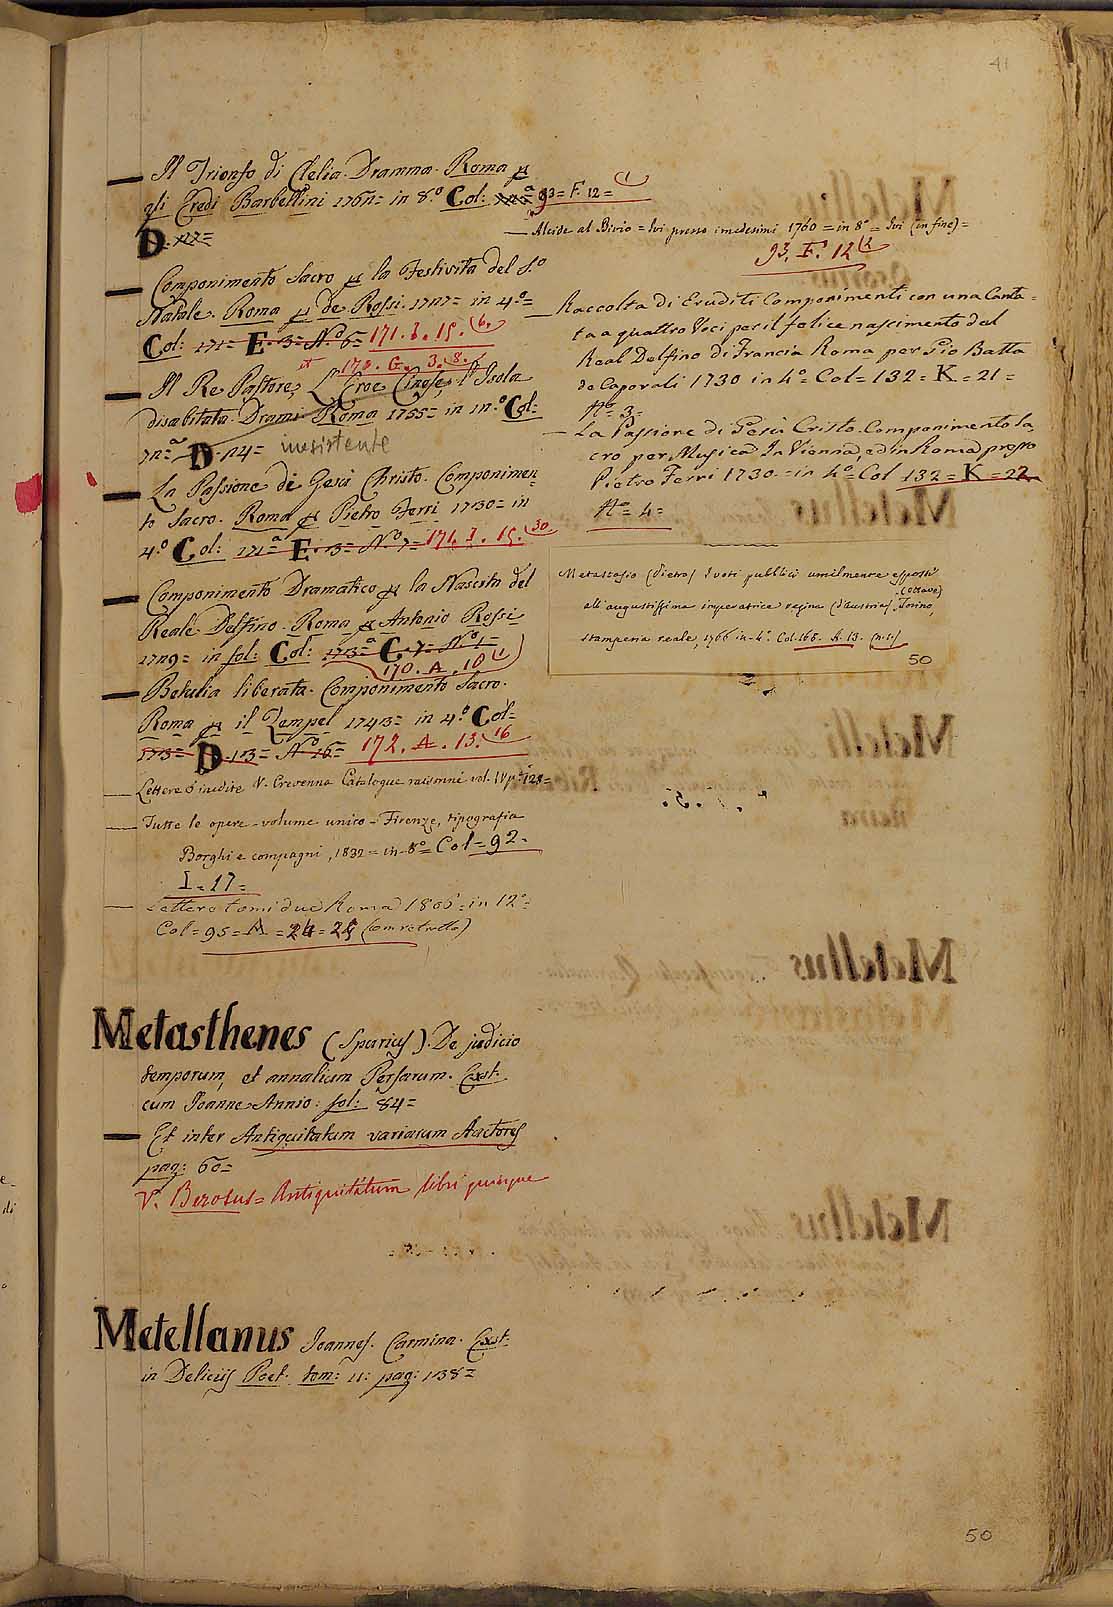 41
Il Trionfo di Clelia. Dramma. Roma per
gli Eredi Barbellini 176n= in 8.º Col: 93= F. 12= (1
D.
— Alcide al Bivio = Ivi presso i medesimi 1760 = in 8º = Ivi (in fine) =
93. F. 12 (2
Componimento Sacro per la Festivita del S.º
Natale. Roma per de Rossi. 17n7= in 4.º=
Col: 171= E. 13= Nº 6= 171. I. 15. (6.
et 172. G. 3. (8.
Il Re Pastore, L'Eroe Cinese, l'Isola
disabitata. Drami Roma 1755= in 1n.º Col:
7n.ª D. n4= inesistente
La Passione di Gesù Christo. Componimen
to Sacro. Roma per Pietro Ferri 1730= in
4.º Col: 171=ª E. 13= Nº 7= 171. I. 15. (30.
Componimento Dramatico per la Nascita del
Reale Delfino. Roma per Antonio Rossi
17n9= in fol: Col: 173=ª C. 7= Nº 1=
170. A. 10 (1
Betulia liberata. Componimento Sacro.
Roma per il Zempel 1743= in 4.º Col=
173= D. 13= Nº 16= 172. A. 13. (16
— Lettere inedite V. Crevenna Catalogue raisonné vol. IV p.ª 128=
— Tutte le opere - volume unico - Firenze, tipografia
Borghi e compagni, 1832 = in 8º = Col = 92.
I = 17 =
— Lettere tomi due Roma 1806 = in 12º =
Col = 95 = A = 24 = 25 (con retratto)
— Raccolta di Eruditi Componimenti con una Canta=
ta a quattro Voci per il felice nascimento del
Real Delfino di Francia Roma per Gio Batta
de Caporali 1730 in 4º = Col = 132 = K = 21 =
Nº 3 =
— La Passione di Gesù Cristo. Componimento Sa
cro per Musica In Vienna, ed in Roma presso
Pietro Ferri 1730 = in 4º = Col 132 = K = 22
Nº = 4 =
Metastasio (Pietro) I voti pubblici umilmente esposti
all'augustissima imperatrice regina (d'Austria). (ottave) Torino,
stamperia reale, 1766 in-4º. Col. 168. A. 13. (n. 1.)
50
Metasthenes (Spurius). De judicio
temporum, et annalium Persarum. Exst.
cum Joanne Annio: fol: 84=
Et inter Antiquitatum variarum Auctores
pag: 60=
V. Berosus = Antiquitatum libri quinque
Metellanus Joannes. Carmina. Exst:
in Deliciis Poet. tom: 11: pag: 1138=
50